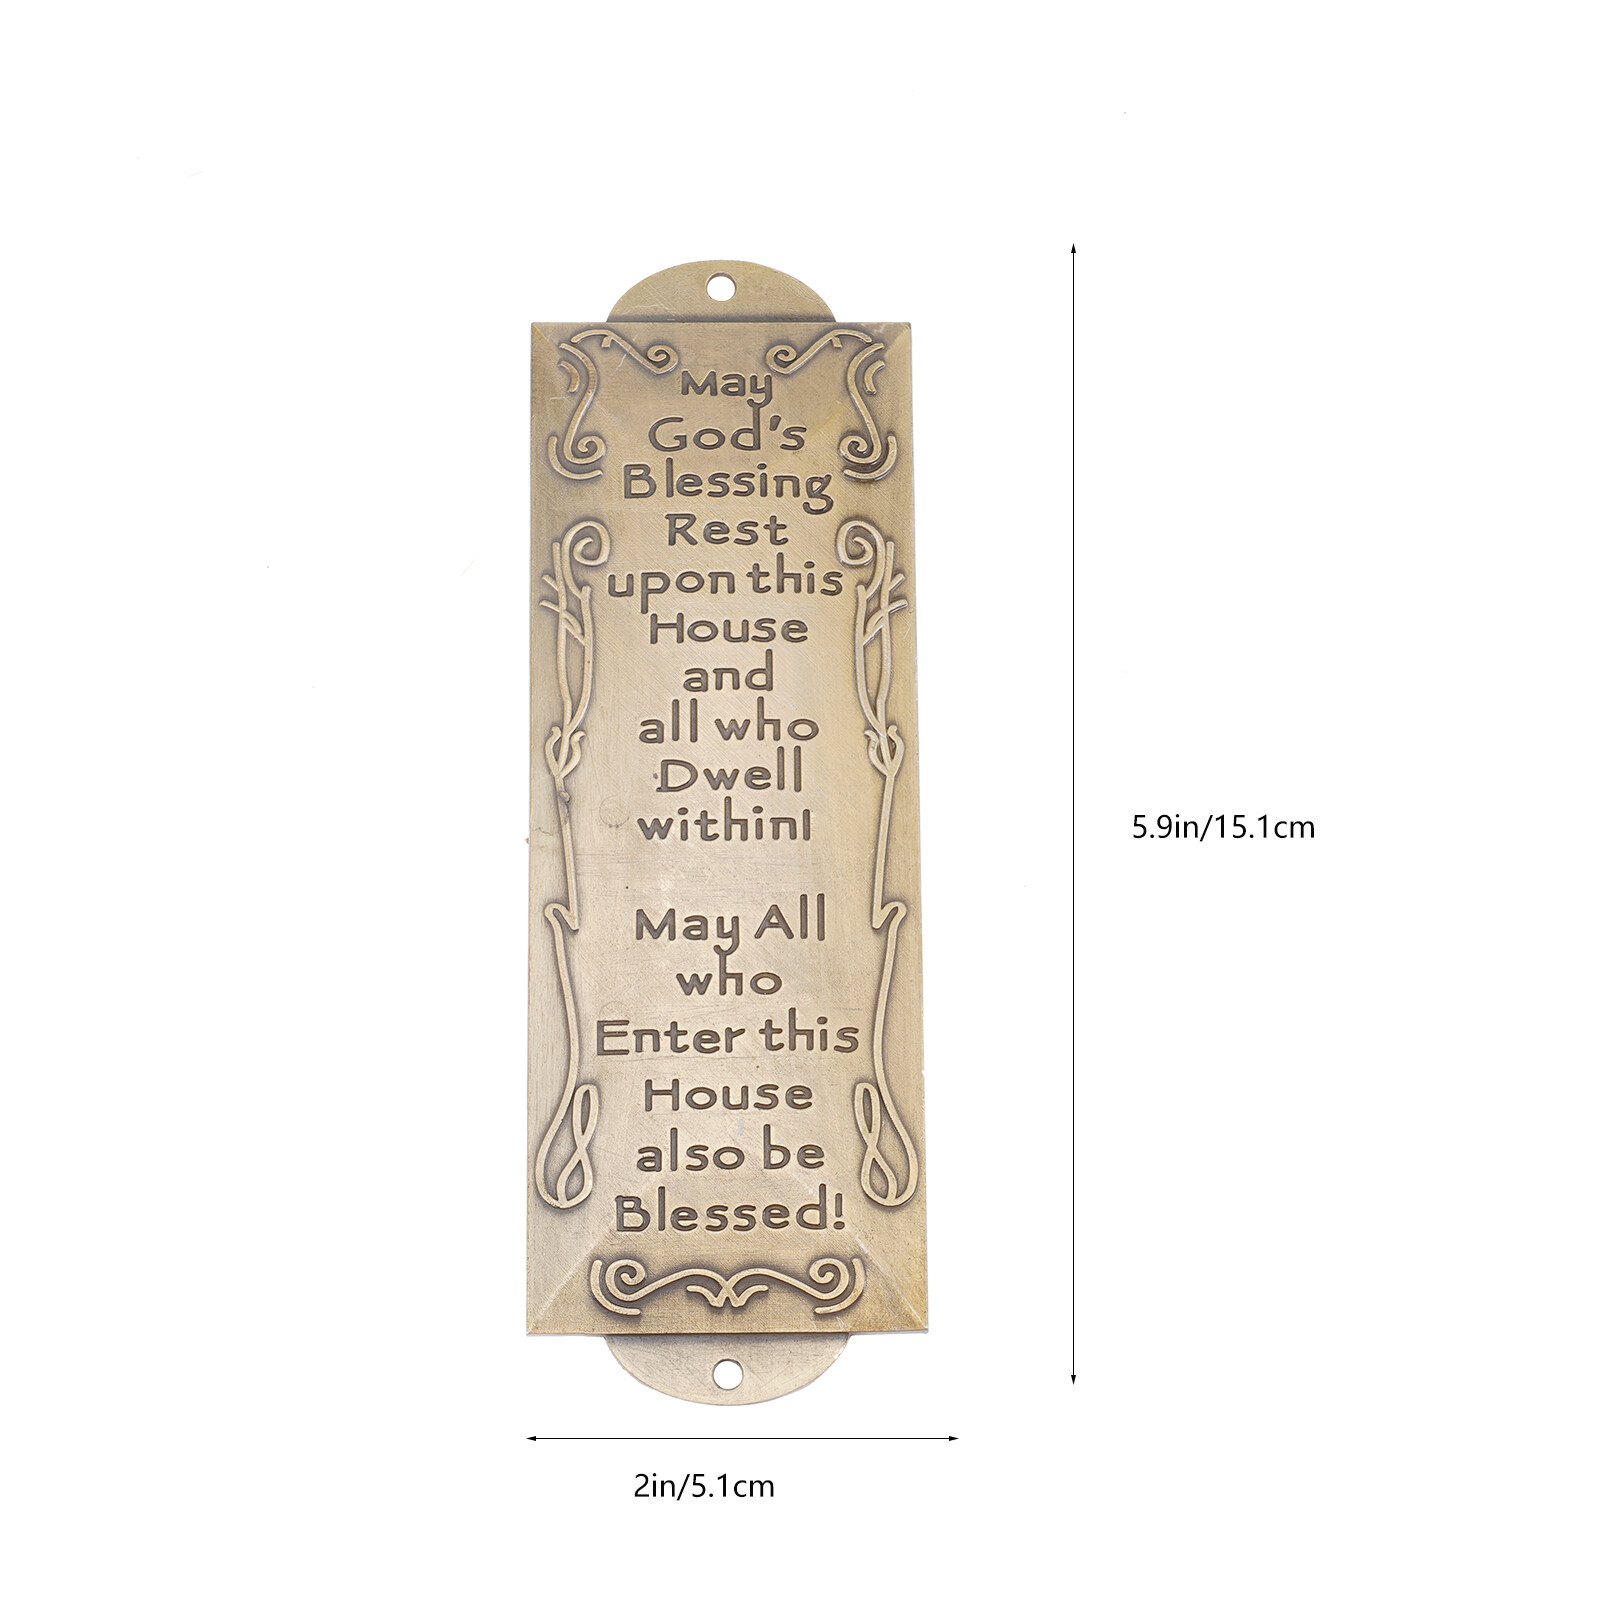 May
God's
Blessing
Rest
upon this
House
and
all who
Dwell
within!
May All
who
Enter this
House
also be
Blessed!
5.9in/15.1cm
2in/5.1cm